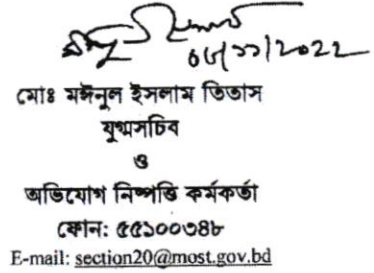 ০৮/১১/২০২২
মোঃ মঈনুল ইসলাম তিতাস
যুগ্মসচিব
ও
অভিযোগ নিষ্পত্তি কর্মকর্তা
ফোন: ৫৫১০০৩৪৮
E-mail: section20@most.gov.bd